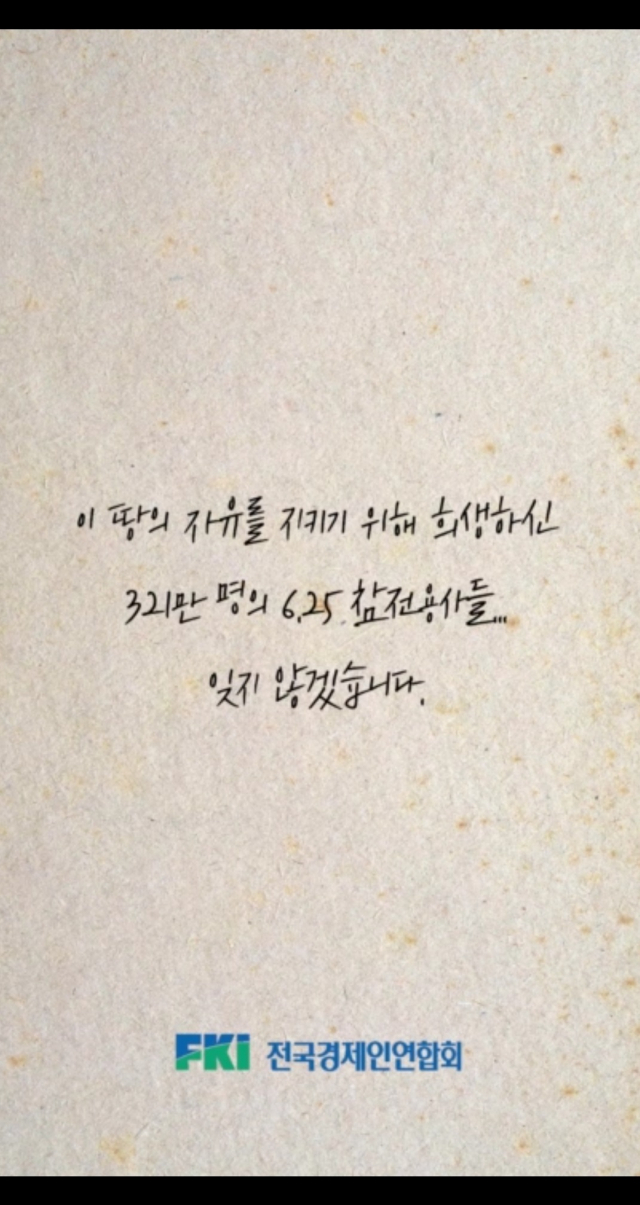 이 땅의 자유를 지키기 위해 희생하신
321만 명의 6.25 참전용사들...
잊지 않겠습니다.
FKI 전국경제인연합회